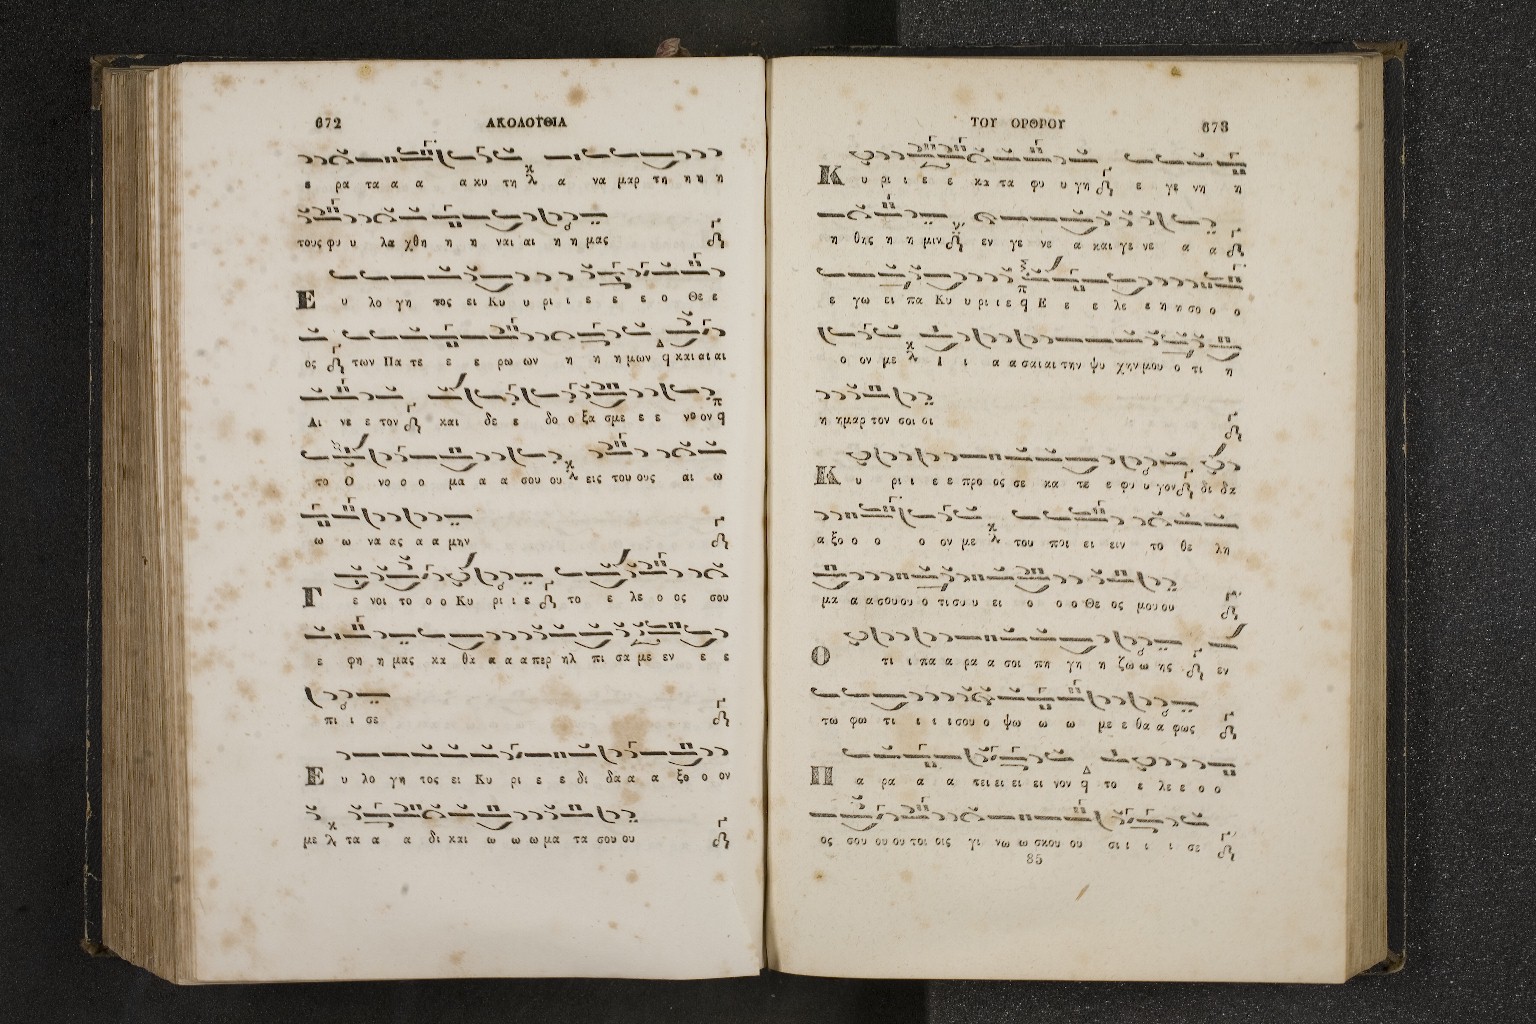 672 ΑΚΟΛΟΥΘΙΑ
ε ρα τα α α α κυ τη α να μαρ τη η η η
τους φυ υ λα χθη η η ναι αι η η μας
Ε υ λο γη τος ει Κυ υ ρι ι ε ε ε ε ο Θε ε
ος των Πα τε ε ε ρω ων η η η μων και αι αι
Αι νε ε τον και δε ε δο ο ξα σμε ε ε νο ον
το Ο νο ο ο μα α α σου ου εις του ους αι ω
ω ω να ας α α μην
Γ ε νοι το ο ο Κυ ρι ι ε το ε λε ο ος σου
ε φη η μας κα θα α α α περ ηλ πι σα με εν ε ε
πι ι σε
Ε υ λο γη τος ει Κυ ρι ε ε δι δα α α ξο ο ον
με τα α α δι και ω ω ω μα τα σου ου
ΤΟΥ ΟΡΘΡΟΥ 673
Κ υ ρι ι ε ε κα τα φυ υ γη ε γε νη η
η θης η η μιν εν γε νε α και γε νε α α
ε γω ει πα Κυ υ ρι ι ε Ε ε ε λε ε η η σο ο ο
ο ον με Ι ι α α σαι αι την ψυ χην μου ο τι η
η ημαρ τον σοι οι
Κ υ ρι ι ε ε προ ος σε κα τε ε φυ υ γον δι δα
α ξο ο ο ο ον με του ποι ει ειν το θε λη
μα α α σου ου ο τι συ υ ει ο ο ο Θε ος μου ου
Ο τι ι πα α ρα α σοι πη γη η ζω ω ης εν
τω φω τι ι ι ι σου ο ψω ω ω με ε θα α φως
Π α ρα α α τει ει ει ει νον το ε λε ε ο ο
ος σου ου ου τοι οις γι νω ω σκου ου σι ι ι ι σε
85